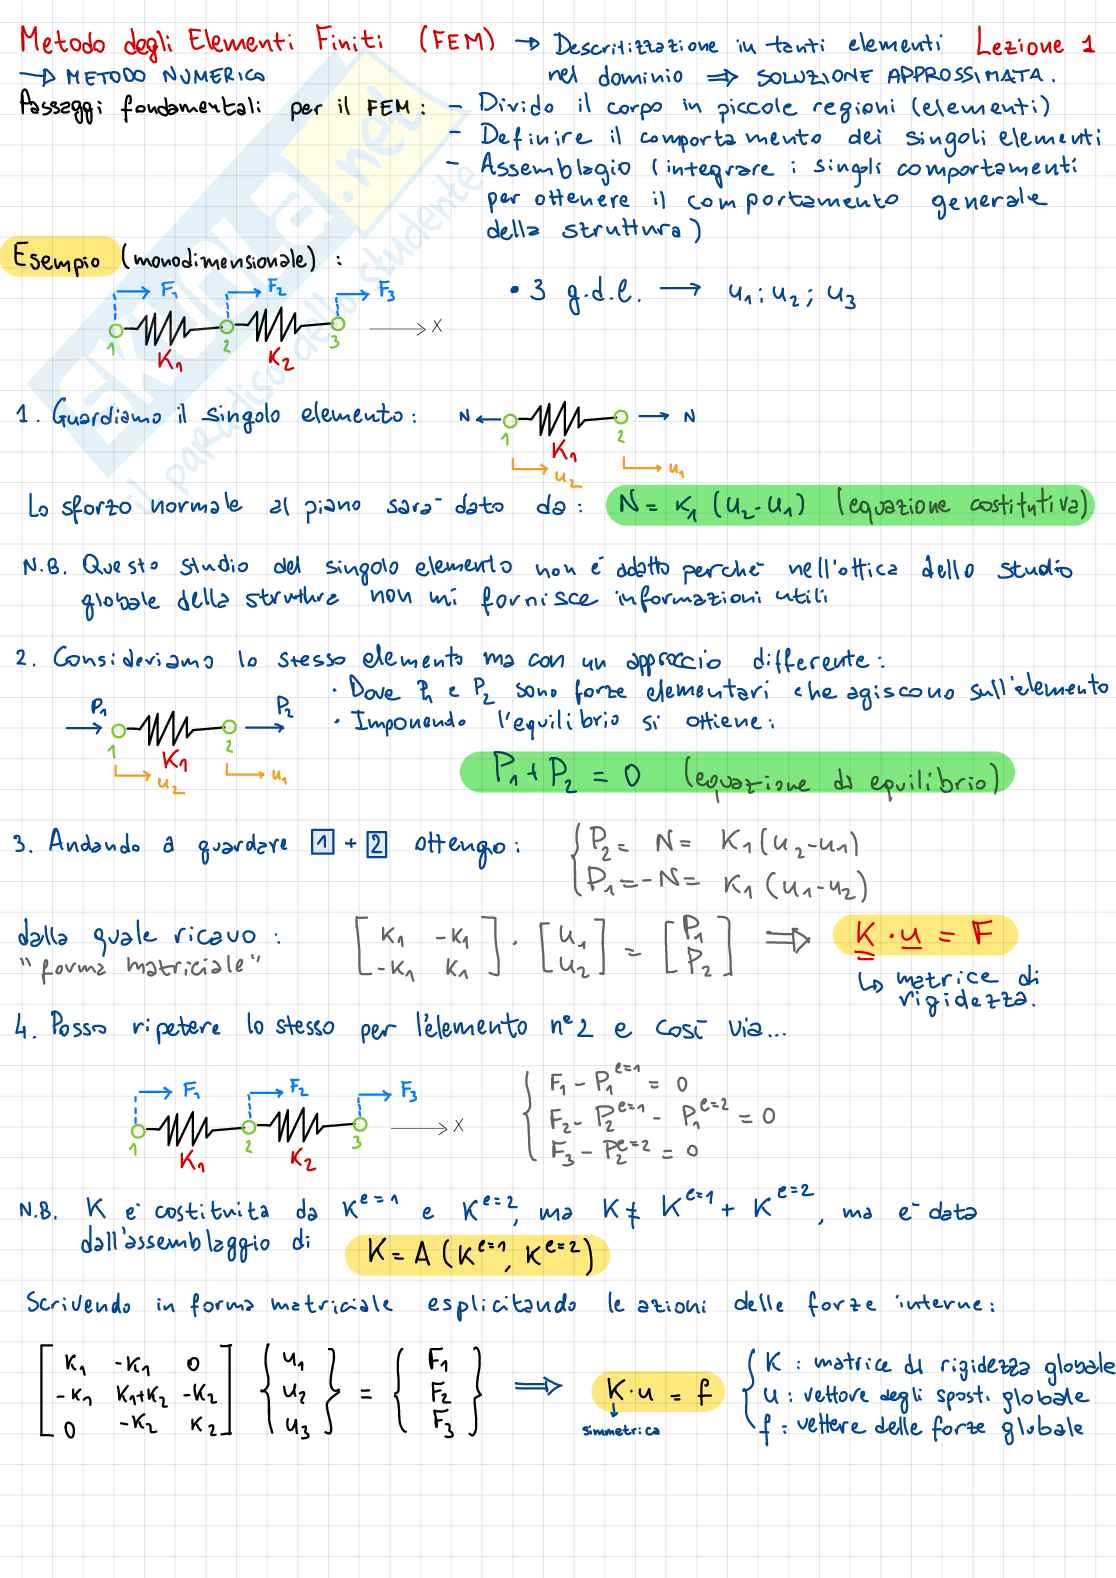 Metodo degli Elementi Finiti (FEM) → Descritizzazione in tanti elementi Lezione 1
→ METODO NUMERICO nel dominio ⇒ SOLUZIONE APPROSSIMATA.
Passaggi fondamentali per il FEM: - Divido il corpo in piccole regioni (elementi)
- Definire il comportamento dei singoli elementi
- Assemblagio (integrare i singoli comportamenti
per ottenere il comportamento generale
della struttura)
Esempio (monodimensionale):
F1 F2 F3
• 3 g.d.l. → u1; u2; u3
1 2 3 x
K1 K2
1. Guardiamo il singolo elemento: N N
1 2
K1
u2 u1
Lo sforzo normale al piano sarà dato da: N = K1 (u2-u1) (equazione costitutiva)
N.B. Questo studio del singolo elemento non è adatto perchè nell'ottica dello studio
globale della struttura non mi fornisce informazioni utili
2. Consideriamo lo stesso elemento ma con un approccio differente:
• Dove P1 e P2 sono forze elementari che agiscono sull'elemento
P1 P2
• Imponendo l'equilibrio si ottiene:
1 2
K1
u2 u1
P1 + P2 = 0 (equazione di equilibrio)
3. Andando a guardare 1 + 2 ottengo: { P2 = N = K1 (u2-u1)
P1 = -N = K1 (u1-u2)
dalla quale ricavo: [K1 -K1 -K1 K1] · [u1 u2] = [P1 P2] ⇒ K · u = F
"forma matriciale"
↳ matrice di
rigidezza.
4. Posso ripetere lo stesso per l'elemento n°2 e così via...
F1 F2 F3
1 2 3 x
K1 K2
{ F1 - P1^e=1 = 0
F2 - P2^e=1 - P1^e=2 = 0
F3 - P2^e=2 = 0
N.B. K è costituita da K^e=1 e K^e=2, ma K ≠ K^e=1 + K^e=2, ma è data
dall'assemblaggio di K = A (K^e=1, K^e=2)
Scrivendo in forma matriciale esplicitando le azioni delle forze interne:
[K1 -K1 0
-K1 K1+K2 -K2
0 -K2 K2] {u1 u2 u3} = {F1 F2 F3} ⇒ K·u = f
simmetrica
{ K : matrice di rigidezza globale
u : vettore degli spost. globale
f : vettere delle forze globale
SKUOLA.net
il paradiso dello studente